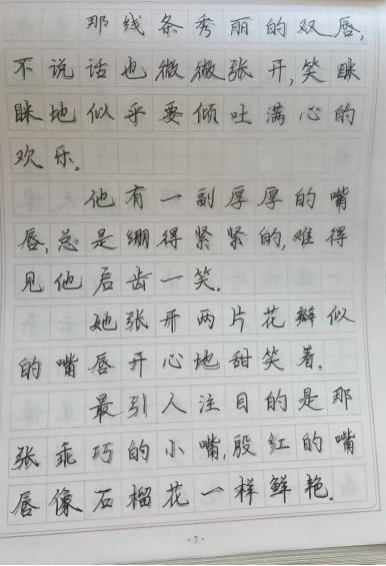 那线条秀丽的双唇,
不说话也微微张开,笑眯
眯地似乎要倾吐满心的
欢乐。
他有一副厚厚的嘴
唇,总是绷得紧紧的,难得
见他启齿一笑。
她张开两片花瓣似
的嘴唇开心地甜笑着。
最引人注目的是那
张乖巧的小嘴,殷红的嘴
唇像石榴花一样鲜艳。
·7·